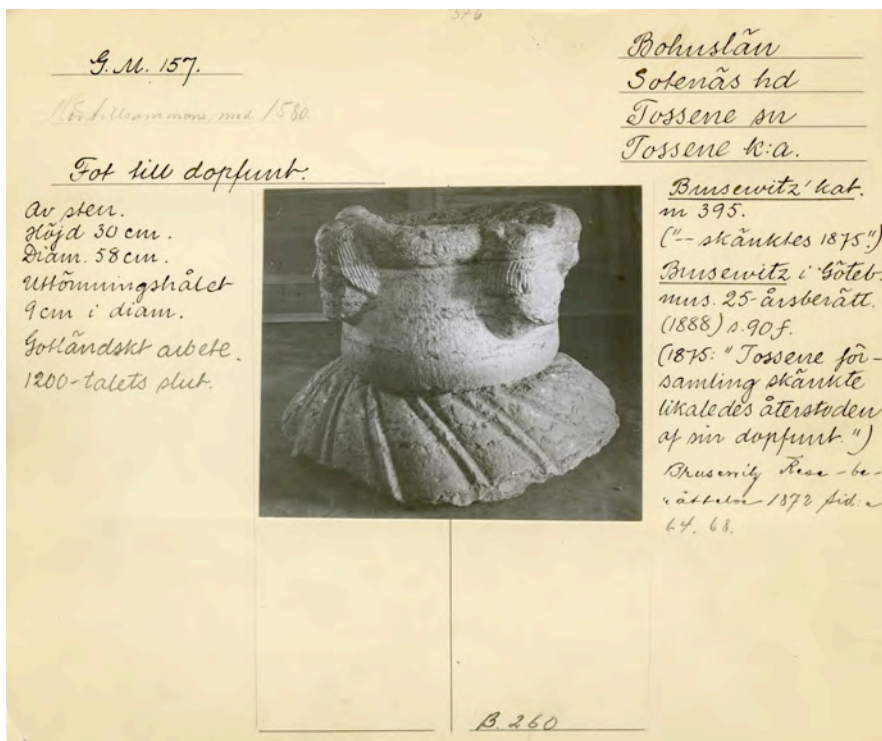 576
G.M. 157.
Hör tillsammans med 1580.
Fot till dopfunt.
Av sten.
Höjd 30 cm.
Diam. 58 cm.
Uttömningshålet
9 cm i diam.
Gotländskt arbete.
1200-talets slut.
Bohuslän
Sotenäs hd
Tossene sn
Tossene k:a.
Brusewitz' kat.
nr 395.
("-- skänktes 1875".)
Brusewitz i Göteb.
mus. 25-årsberätt.
(1888) s. 90 f.
(1875: "Tossene för-
samling skänkte
likaledes återstoden
af sin dopfunt.")
Brusewitz Rese-be-
rättelse 1872 sid:a
64, 68.
B. 260